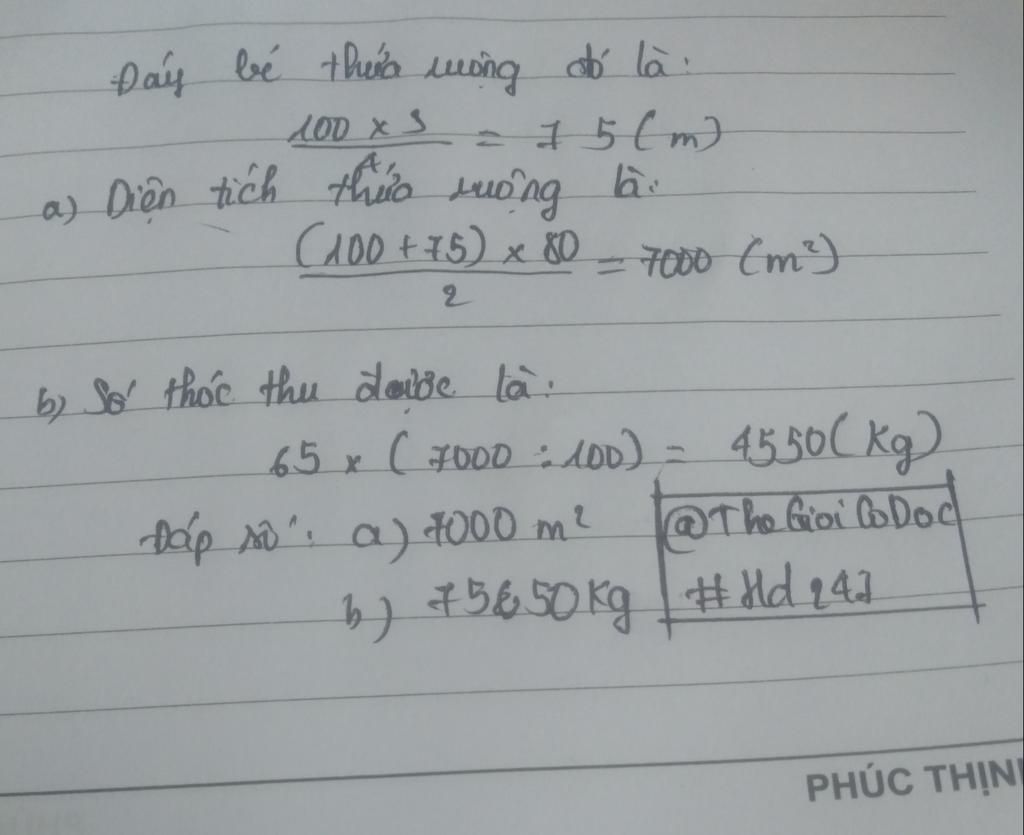 Đáy bé thửa ruộng đó là:
100 x 3 / 4 = 75 (m)
a) Diện tích thửa ruộng là:
(100 + 75) x 80 / 2 = 7000 (m²)
b) Số thóc thu được là:
65 x (7000 : 100) = 4550 (Kg)
Đáp số: a) 7000 m²
b) 75650 Kg
@TheGioiCoDoc
# Hd 247
PHÚC THỊN